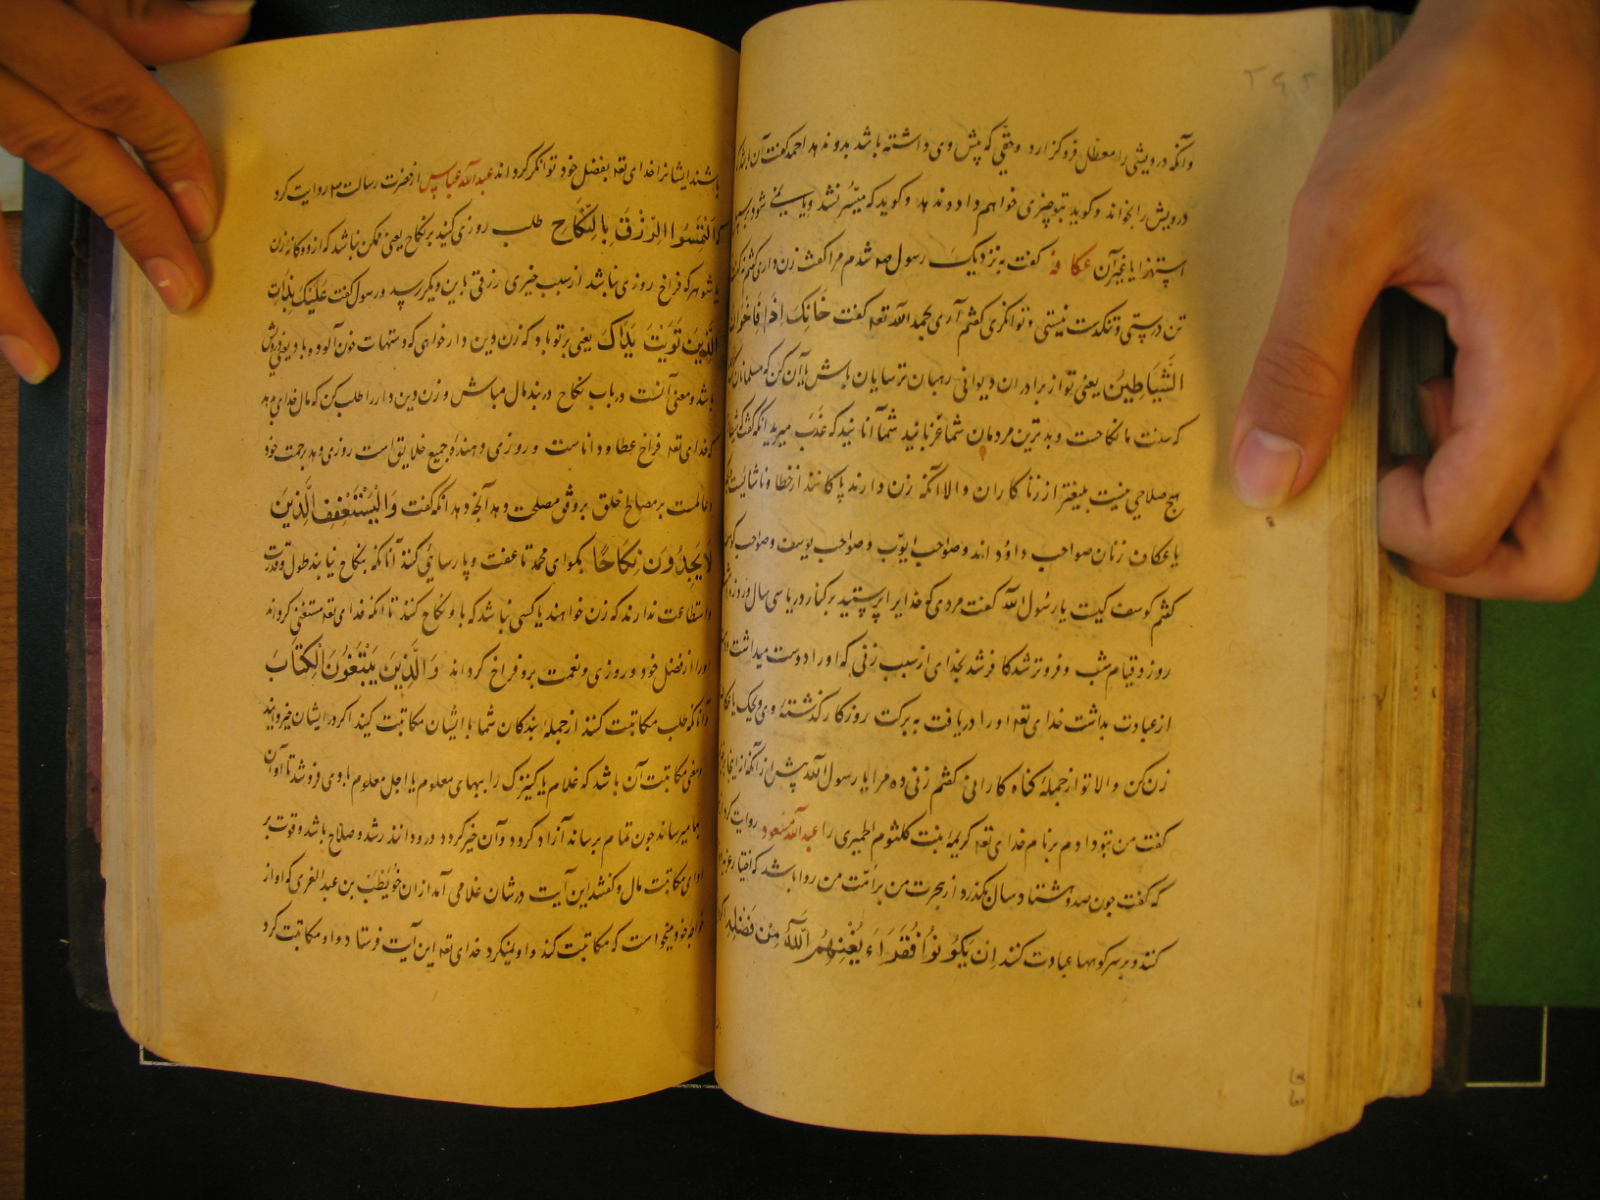 ۲۶۲
وآنکه درویشی را معطل فروگزارد وحقی که پیش وی داشته باشد بدو ندهد احمد گفت آن باشد که
درویش را بخواند وگوید بتو چیزی خواهم داد وندهد وگوید که میسّر نشد ویا
استهزا یا بغیر آن عکافه گفت به نزدیک رسول صه شدم مرا گفت زن داری گفتم نه گفت
تن درستی وتنگدست نیستی وتوانگری گفتم آری بحمد الله تعه گفت خَانِکَ اِذَا
الشَّیَاطِیْن یعنی تو از برادران دیوانی رهبان ترسایان باش یا آن کن که مسلمانان کنند
که سنت ما نکاحست وبدترین مردمان شما عزبانید شما آنانید که عَذَب میرید انکه گفت
هیچ صلاحی نیست بلیغتر از زنا کاران والا آنکه زن دارند پاکانند از خطا وناشایست
یا عکاف زنان صواحب داؤد اند وصواحب ایوّب وصواحب یوسف وصواحب کوسف
گفتم کوسف کیست یا رسُول الله گفت مردی کو خدایرا پرستید بر کنار دریا سی سال در روزه
روز وقیام شب وفروتر شد کافر شد بخدای از سبب زنی که او را دوست میداشت
از عبادت بداشت خدای تعه او را دریافت به برکت روزگار گذشتهٔ وی ویحک یا عکاف
زن کن والا تو از جملهٔ گناه کارانی گفتم زنی ده مرا یا رسول الله پیش از آنکه از اینجا
گفت من بتو دادم بر نام خدای تعه کریمهٔ بنت کلثوم الحمیری را عبد الله مسعود روایت کرد
که گفت چون صد وهشتاد سال بگذرد از هجرت من بر امّت من روا باشد که اختیار
کنند وبر سر کوهها عبادت کنند اِنْ یَکُوْنُوْا فُقَرَاءَ یُغْنِهِمُ اللّٰهُ مِنْ فَضْلِهِ
باشند ایشانرا خدای تعه بفضل خود توانگر گرداند عبد الله عباس از حضرت رسالت م روایت کرد
که اِلْتَمِسُوا الرِّزْقَ بِالنِّکَاحِ طلب روزی کنید بر نکاح یعنی ممکن نباشد که از دوگانه زن
یا شوهر که فراخ روزی نباشد از سبب خیری رزقی باین ویکر رسد ورسول گفت عَلَیْکَ بِذَاتِ
الدِّیْن تَرِبَتْ یَدَاکَ یعنی بر تو باد که زن دین دار خواهی که دستهات خون آلوده باد یعنی درویش
باشد ومعنی آنست در باب نکاح در بند مال مباش وزن دین دار را طلب کن که مال خدای بدهد
که خدای تعه فراخ عطا ودانا ست وروزی دهندهٔ جمیع خلایق است روزی دهد برحمت خود
وعالمست بر مصالح خلق بر وفق مصلحت دهد آنچه دهد انکه گفت وَالْیَسْتَعْفِفِ الَّذِیْنَ
لَا یَجِدُوْنَ نِکَاحًا بگو ای محمد تا عفت وپارسائی کنند آنانکه بنکاح نیابند طول وقدرت
واستطاعت ندارند که زن خواهند یا کسی نباشد که با او نکاح کنند تا آنکه خدای تعه مستغنی گرداند
او را از فضل خود وروزی ونعمت برو فراخ گرداند وَالَّذِیْنَ یَبْتَغُوْنَ الْکِتَابَ
وآنانکه طلب مکاتبت کنند از جملهٔ بندگان شما با ایشان مکاتبت کنید اگر در ایشان خیر دانید
ومعنی مکاتبت آن باشد که غلام یا کنیزک را ببهای معلوم یا اجل معلوم با وی فروشد تا او آن
بها میرساند چون تمام برساند آزاد گردد وآن خیر گردد درو دانند رشد وصلاح باشد وقوت بر
ادای مکاتبت مال وگفتند این آیت در شان غلامی آمد از ان خُوَیْطَب بن عبد العزی که او از
خواجهٔ خود میخواست که مکاتبت کند واو نمیکرد خدای تعه این آیت فرستاد واو مکاتبت کرد